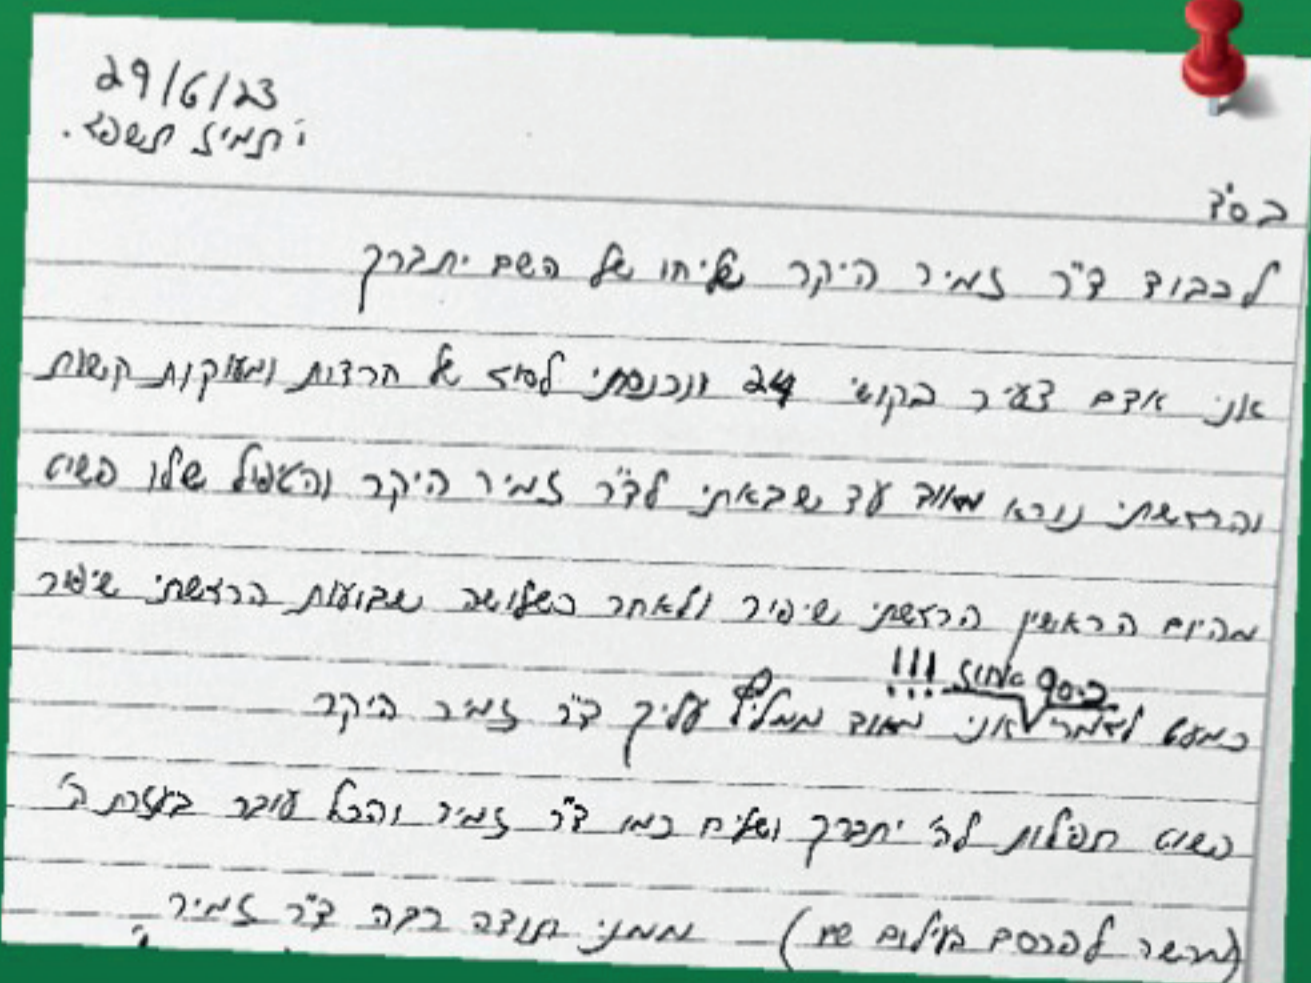 29/6/23
י' תמוז תשפג.
בס"ד
לכבוד ד"ר זמיר היקר שליחו של השם יתברך
אני אדם צעיר בקושי 24 ונכנסתי לסוג של חרדות ומועקות קשות
והרגשתי נורא מאוד עד שבאתי לד"ר זמיר היקר והטיפול שלו פשוט
מהיום הראשון הרגשתי שיפור ולאחר כשלושה שבועות הרגשתי שיפור
כמעט לגמרי אני מאוד ממליץ עליך ד"ר זמיר היקר
!!! אחוז
פשוט תפילות לה' יתברך ושליח כמו ד"ר זמיר והכל עובר בעזרת ה'
(מרשה לפרסם בעילום שם) - ממני תודה רבה ד"ר זמיר